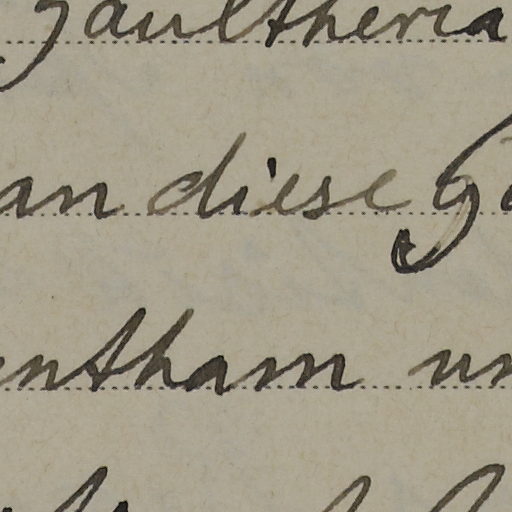 Gaultheria
an diese
ntham un